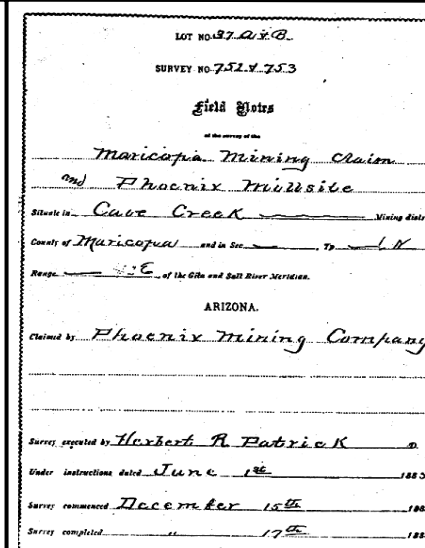 LOT NO. 37 A & B
SURVEY NO. 752 & 753
Field Notes
of the survey of the
Maricopa Mining Claim
and Phoenix Millsite
Situate in Cave Creek Mining dist
County of Maricopa and in Sec Tp N
Range E of the Gila and Salt River Meridian.
ARIZONA.
Claimed by Phoenix Mining Company
Survey executed by Herbert R Patrick D
Under instructions dated June 1st 1883
Survey commenced December 15th 188
Survey completed " 17th 188